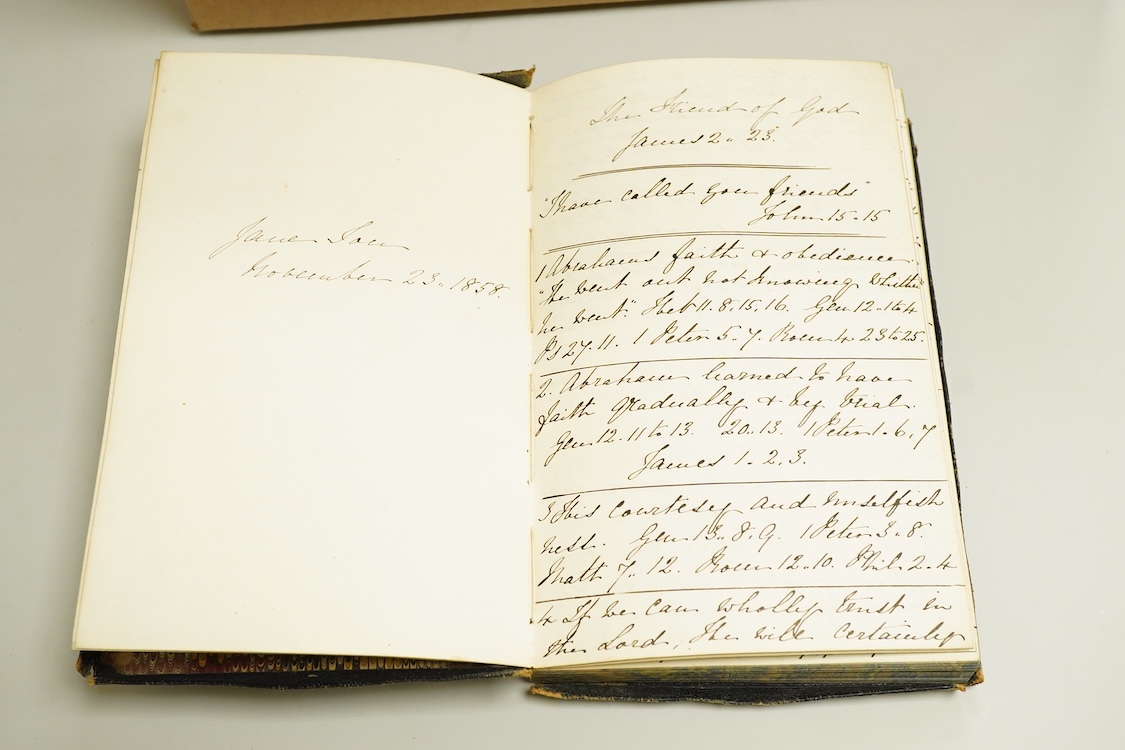 Jane
November 23. 1858.
The Friend of God
James 2. 23.
"I have called you friends"
John 15. 15
1 Abrahams faith & obedience.
"He went out not knowing whither
he went". Heb 11. 8, 15, 16. Gen 12. 1 to 4
Ps 27. 11. 1 Peter 5. 7. Rom 4. 23 to 25.
2. Abraham learned to have
faith gradually & by trial.
Gen 12. 11 to 13. 20. 13. 1 Peter 1. 6, 7
James 1. 2, 3.
3 His courtesy and unselfish
ness. Gen 13. 8, 9. 1 Peter 3. 8.
Matt 7. 12. Rom 12. 10. Phil 2. 4
4 If we can wholly trust in
the Lord, He will certainly